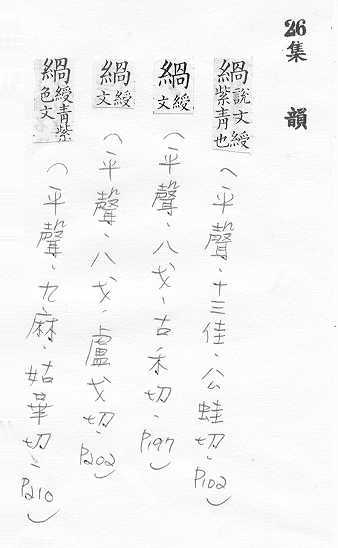 26 集韻
緺 說文綬紫青也 (平聲、十三佳、公蛙切、P102)
緺 綬文 (平聲、八戈、古禾切、P197)
緺 綬文 (平聲、八戈、盧戈切、P202)
緺 綬青紫色文 (平聲、九麻、姑華切、P210)